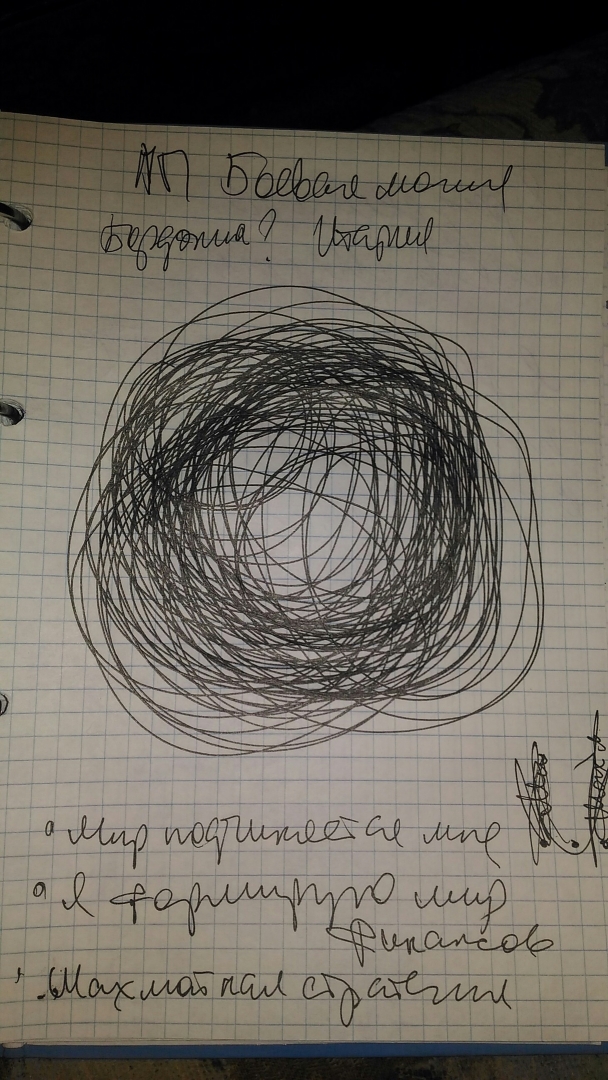 МП Боевая магия
? Италия
Мир подчиняется мне
Я формирую мир
финансов
Шахматная стратегия